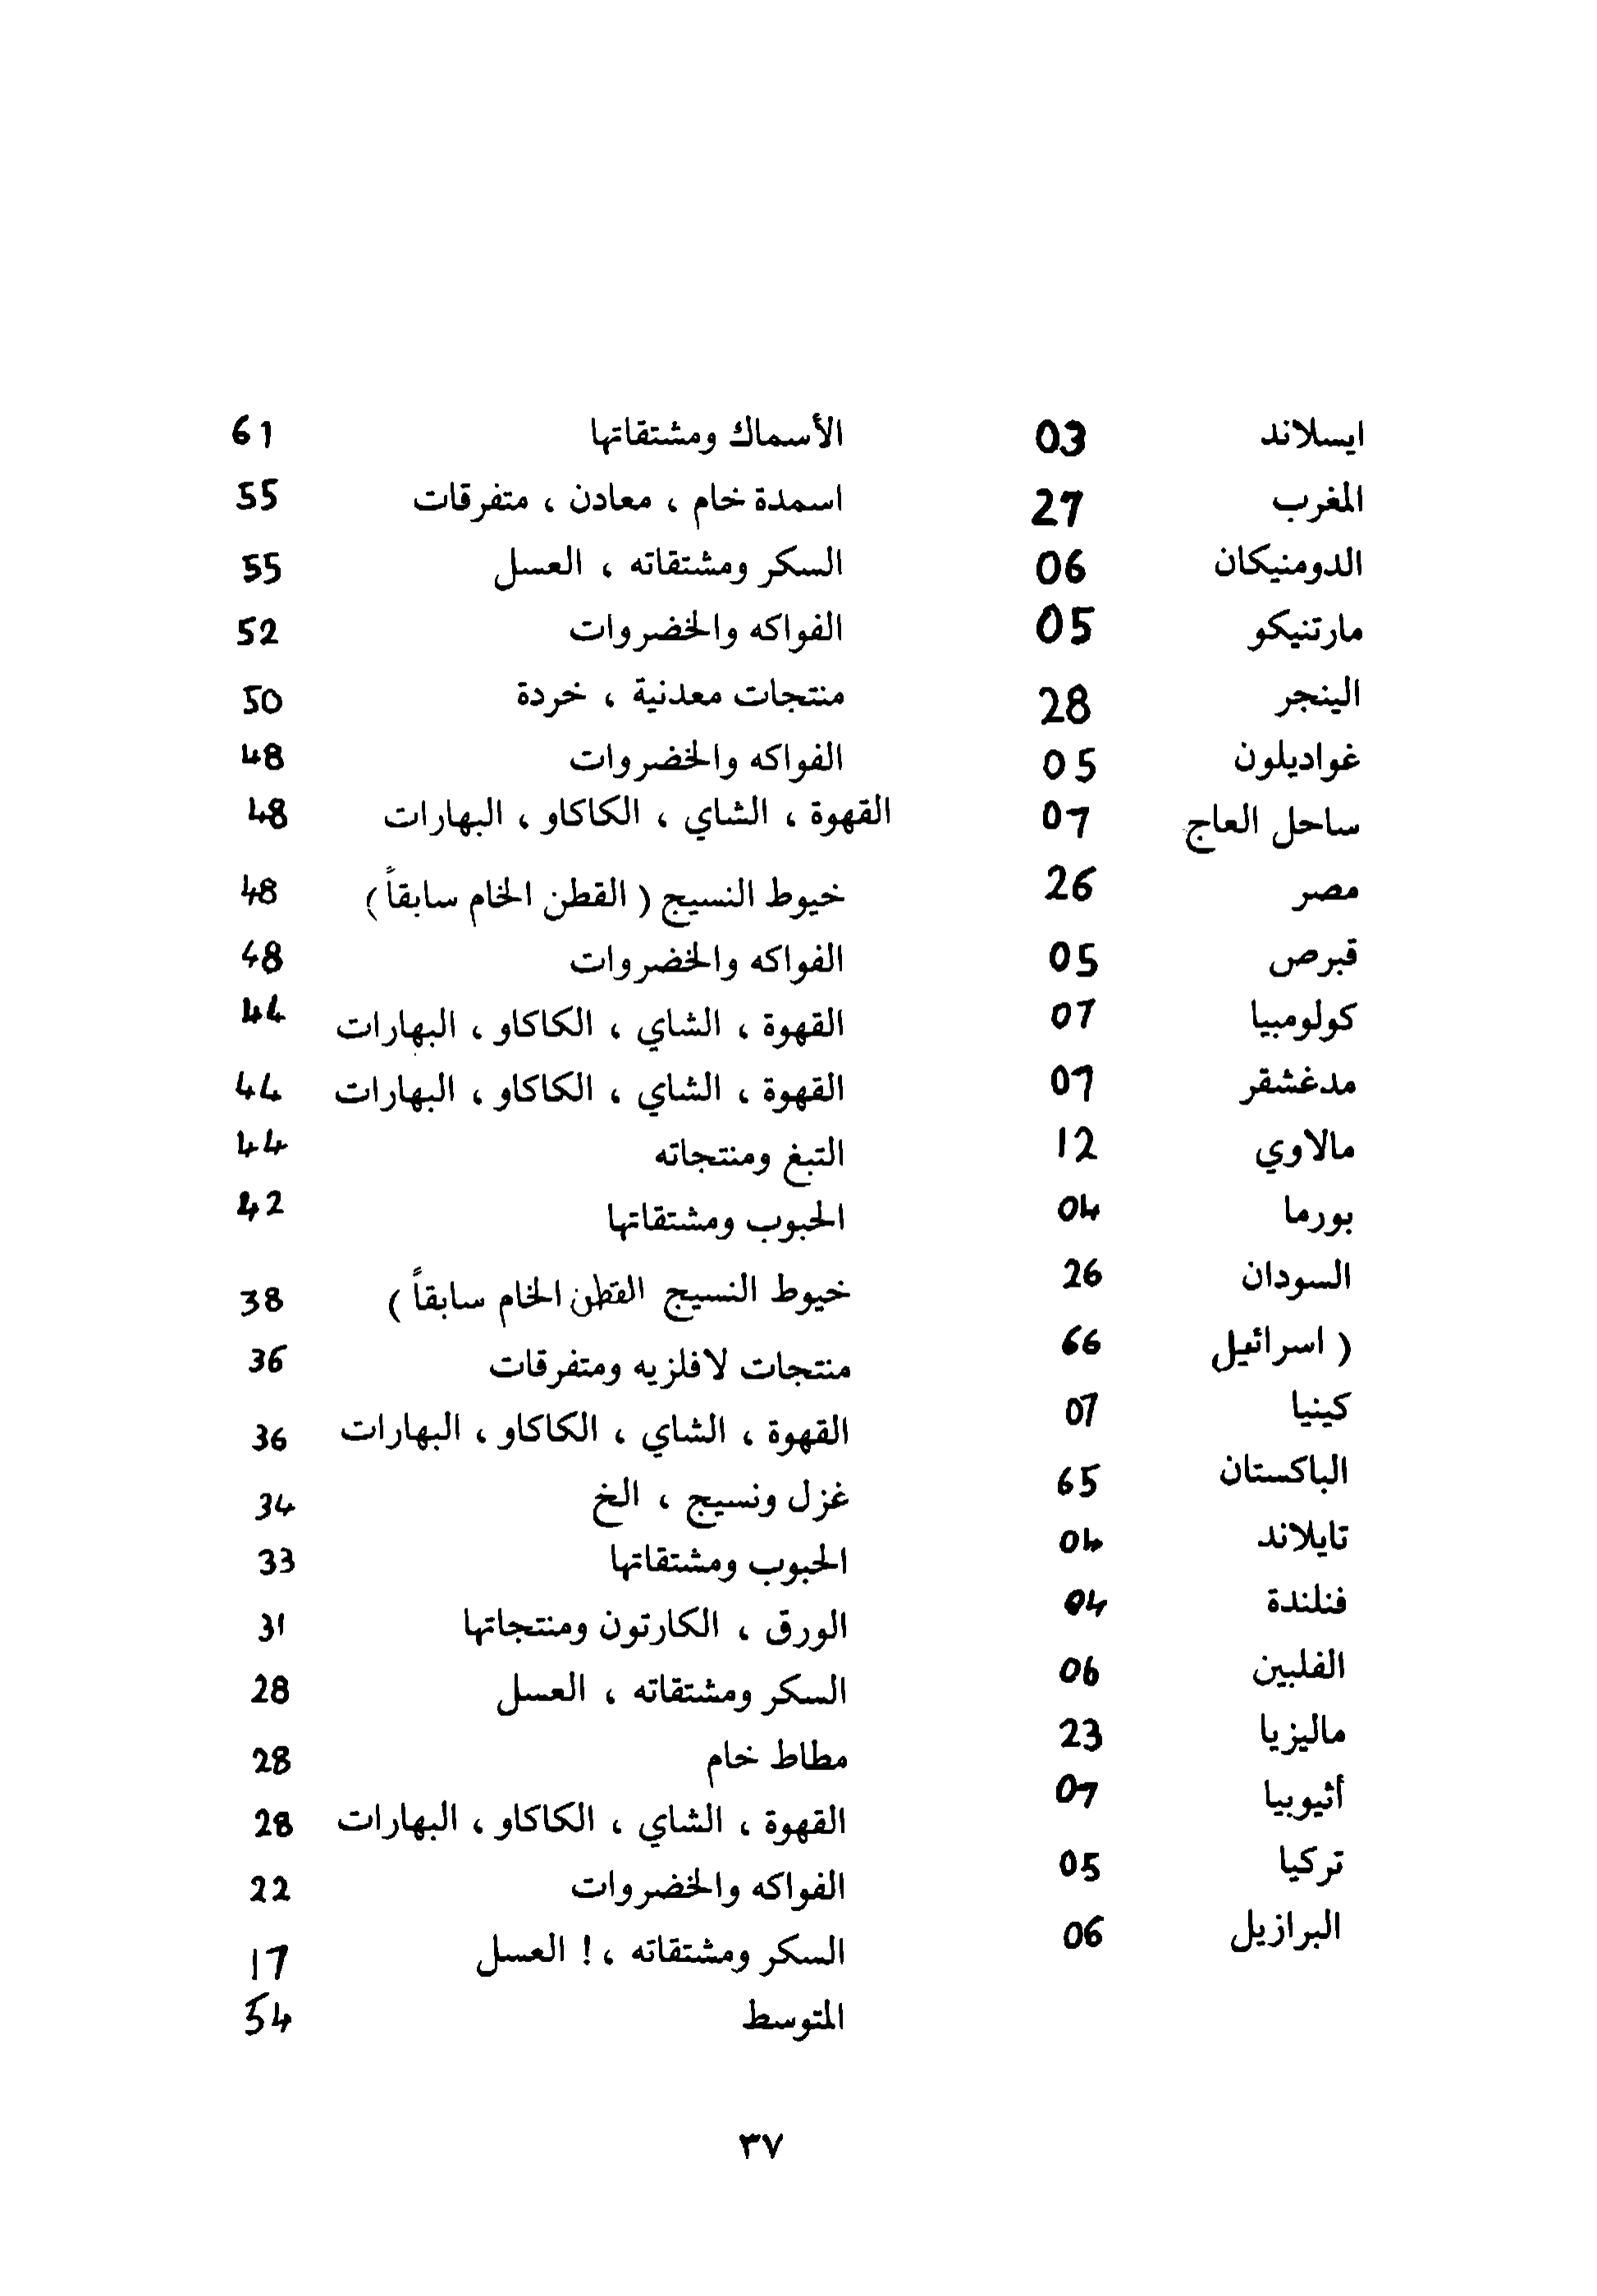 ايسلاند 03 الأسماك ومشتقاتها 61
المغرب 27 اسمدة خام ، معادن ، متفرقات 55
الدومنيكان 06 السكر ومشتقاته ، العسل 55
مارتنيكو 05 الفواكه والخضروات 52
الينجر 28 منتجات معدنية ، خردة 50
غواديلون 05 الفواكه والخضروات 48
ساحل العاج 07 القهوة ، الشاي ، الكاكاو ، البهارات 48
مصر 26 خيوط النسيج ( القطن الخام سابقاً ) 48
قبرص 05 الفواكه والخضروات 48
كولومبيا 07 القهوة ، الشاي ، الكاكاو ، البهارات 44
مدغشقر 07 القهوة ، الشاي ، الكاكاو ، البهارات 44
مالاوي 12 التبغ ومنتجاته 44
بورما 04 الحبوب ومشتقاتها 42
السودان 26 خيوط النسيج القطن الخام سابقاً ) 38
( اسرائيل 66 منتجات لافلزيه ومتفرقات 36
كينيا 07 القهوة ، الشاي ، الكاكاو ، البهارات 36
الباكستان 65 غزل ونسيج ، الخ 34
تايلاند 04 الحبوب ومشتقاتها 33
فنلندة 04 الورق ، الكارتون ومنتجاتها 31
الفلبين 06 السكر ومشتقاته ، العسل 28
ماليزيا 23 مطاط خام 28
أثيوبيا 07 القهوة ، الشاي ، الكاكاو ، البهارات 28
تركيا 05 الفواكه والخضروات 22
البرازيل 06 السكر ومشتقاته ،! العسل 17
المتوسط 54
٣٧